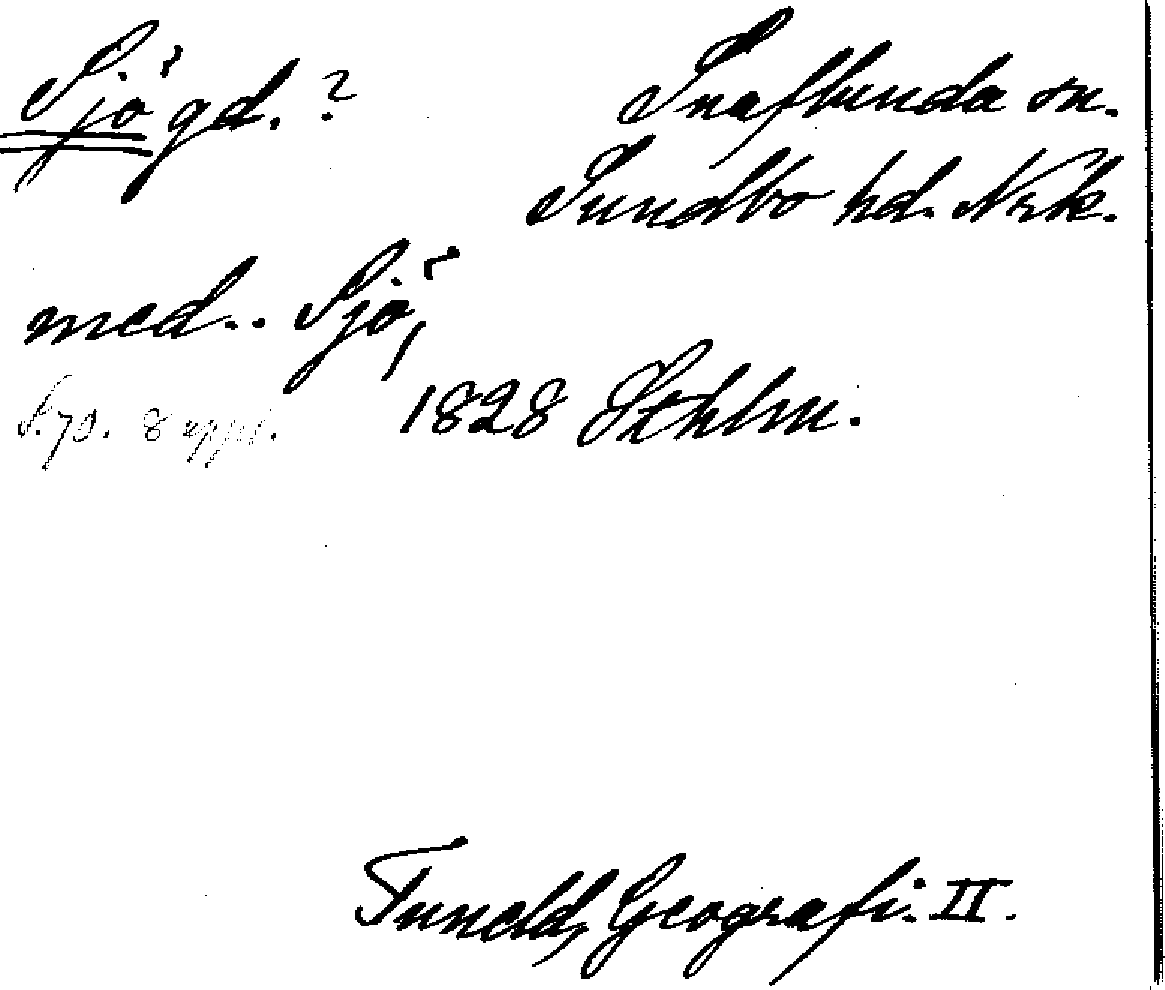 Sjö gd. ?
Snaflunda sn.
Sundbo hd. Nrk.
med.. Sjö,
S. 70. 8 uppl. 1828 Sthlm.
Tuneld, Geografi. II.